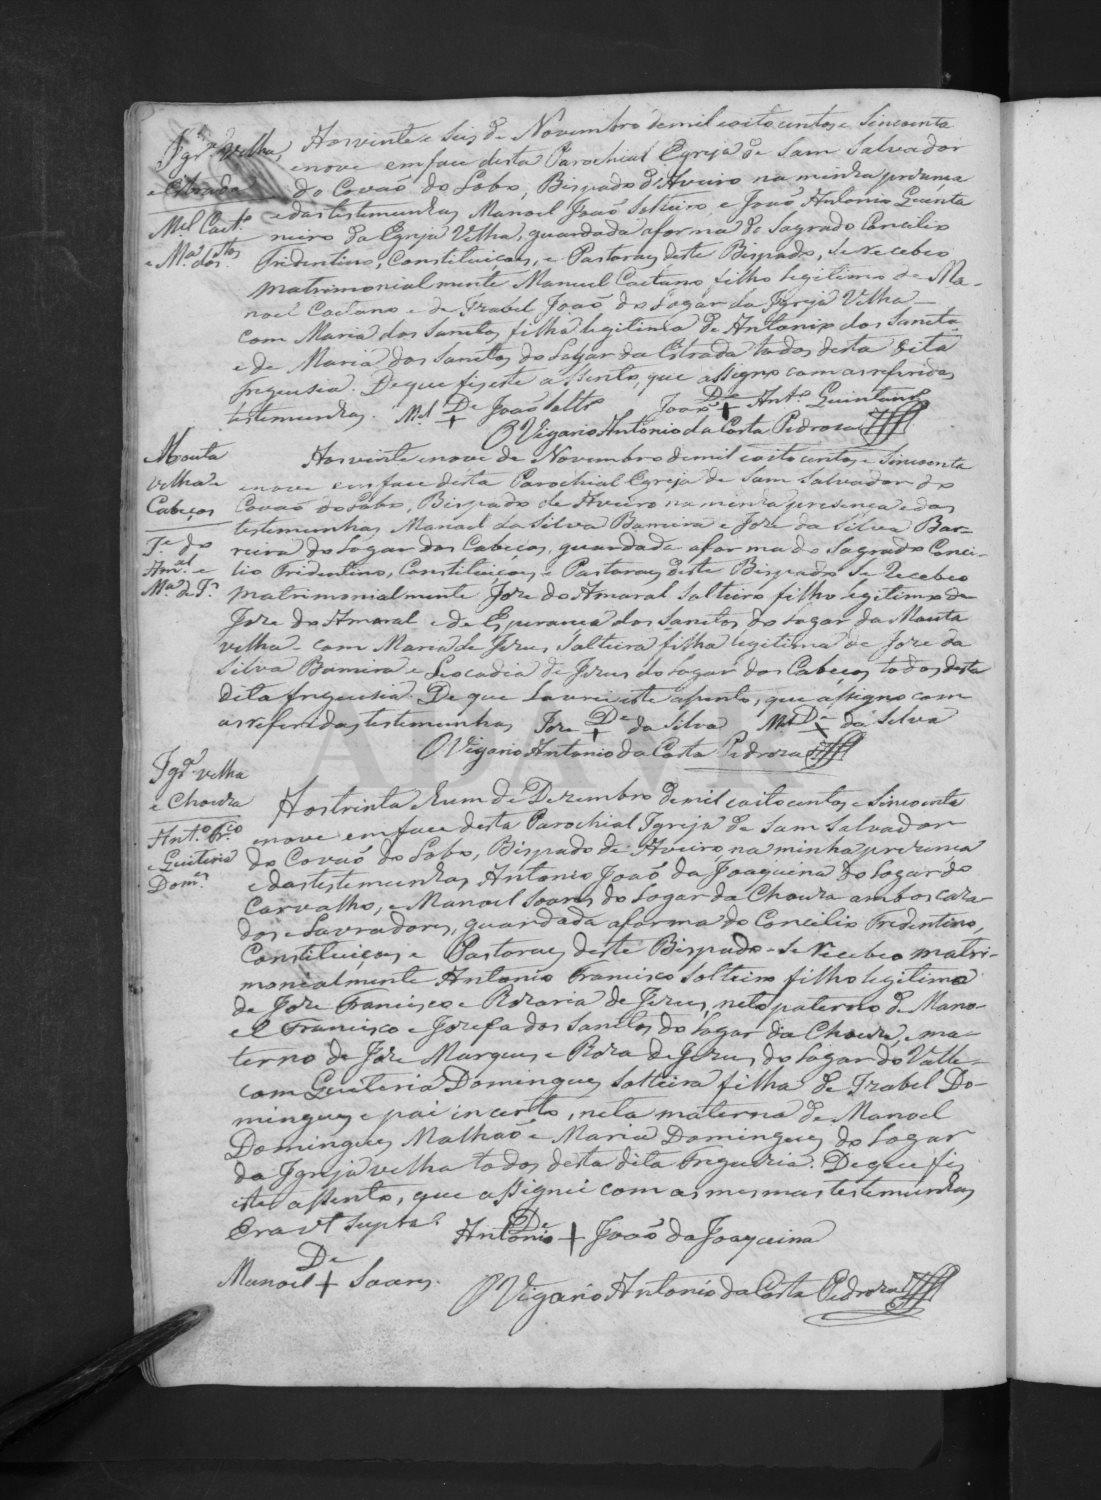 Igr.ª Velha
e Estrada
Mel Caet.º
e M.ª dos Stos
Aos vinte e seis de Novembro de mil oito centos e sincoenta
e nove em face desta Parochial Egreja de Sam Salvador
do Covaõ do Lobo, Bispado d'Aveiro na minha prezença
e das testemunhas Manoel Joaõ Solteiro, e Joaõ Antonio Quinta
neiro da Egreja Velha, guardada a forma do Sagrado Concilio
Tridentino, Constituiçoes, e Pastoraes deste Bispado, se recebeo
matrimonialmente Manuel Caetano, filho legitimo de Ma-
noel Caetano e de Izabel Joaõ do Logar da Igreja Velha
com Maria dos Sanctos filha legitima de Antonio dos Sanctos
e de Maria dos Sanctos do Logar da Estrada todos desta dita
freguesia. De que fiz este assento, que assigno com as referidas
testemunhas. M.el De + Joaõ Soltr.º Joaõ De + Ant.º Quintan.º
O Vigario Antonio da Costa Pedroza
Mouta
velha e
Cabeços
J.e do
Am.al e
M.ª de J.s
Aos vinte e nove de Novembro de mil oito centos e sincoenta
e nove em face desta Parochial Egreja de Sam Salvador do
Covaõ do Lobo, Bispado de Aveiro na minha presença e das
testemunhas Manoel da Silva Bameira e Joze da Silva Bar-
reira do Logar dos Cabeços, guardada a forma do Sagrado Conci-
lio Tridentino, Constituiçoes, e Pastoraes deste Bispado se recebeo
matrimonialmente Joze do Amaral Solteiro filho legitimo de
Joze do Amaral e de Esperança dos Sanctos do Logar da Mouta
velha - com Maria de Jezus Solteira filha legitima de Joze da
Silva Bameira e Leocadia de Jezus do Logar dos Cabeços todos desta
dita freguesia. De que lavrei este assento, que assigno com
as referidas testemunhas Joze De + da Silva Mel De + da Silva
O Vigario Antonio da Costa Pedroza
Igr.ª velha
e Chouza
Ant.º Fr.co
e Quiteria
Dom.es
Aos trinta e hum de Dezembro de mil oito centos e sincoenta
e nove em face desta Parochial Igreja de Sam Salvador
do Covaõ do Lobo, Bispado de Aveiro na minha prezença
e das testemunhas Antonio Joaõ da Joaquina do Logar do
Carvalho, e Manoel Soares do Logar da Chouza ambos caza-
dos e Lavradores, guardada a forma do Concilio Tridentino,
Constituiçoes e Pastoraes deste Bispado - se recebeo matri-
monialmente Antonio Francisco Solteiro filho legitimo
de Joze Francisco e Rozaria de Jezus, neto paterno de Mano-
el Francisco e Jozefa dos Sanctos do Logar da Chouza, e ma-
terno de Joze Marques e Roza de Jezus do Logar do Valle -
com Quiteria Domingues Solteira filha de Izabel Do-
mingues e pai incerto, neta materna de Manoel
Domingues Malhaõ e Maria Domingues do Logar
da Igreja velha todos desta dita freguezia. De que fiz
este assento, que assignei com as mesmas testemunhas
Era vt supra. Antonio De + Joaõ da Joaquina
Manoel De + Soares.
O Vigario Antonio da Costa Pedroza